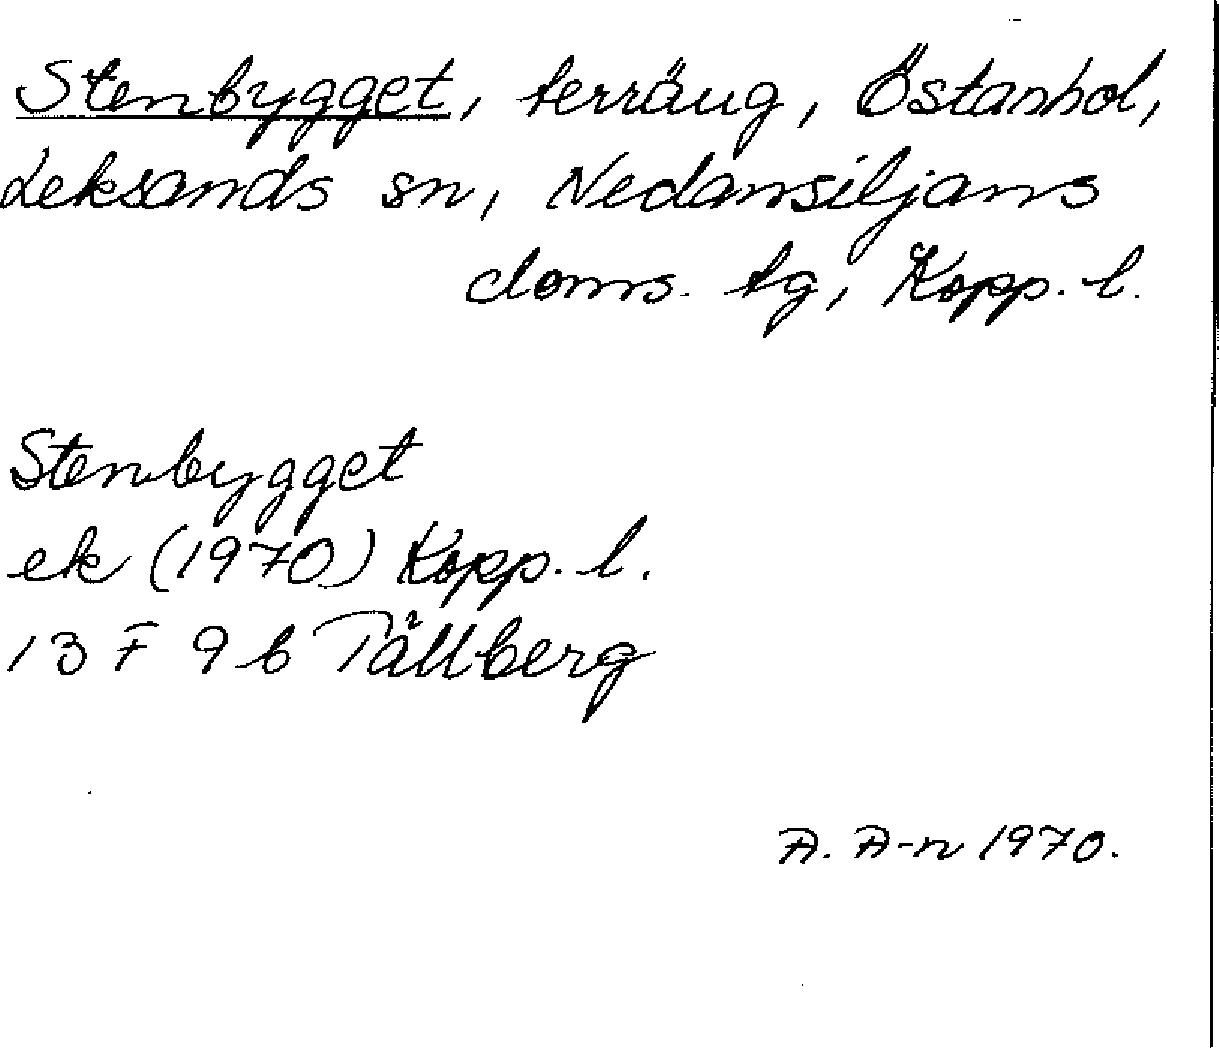 Stenbygget, terräng, Östanhol,
Leksands sn, Nedansiljans
doms. tg, Kopp. l.
Stenbygget
ek (1970) Kopp. l.
13 F 9 b Tällberg
A. A-n 1970.